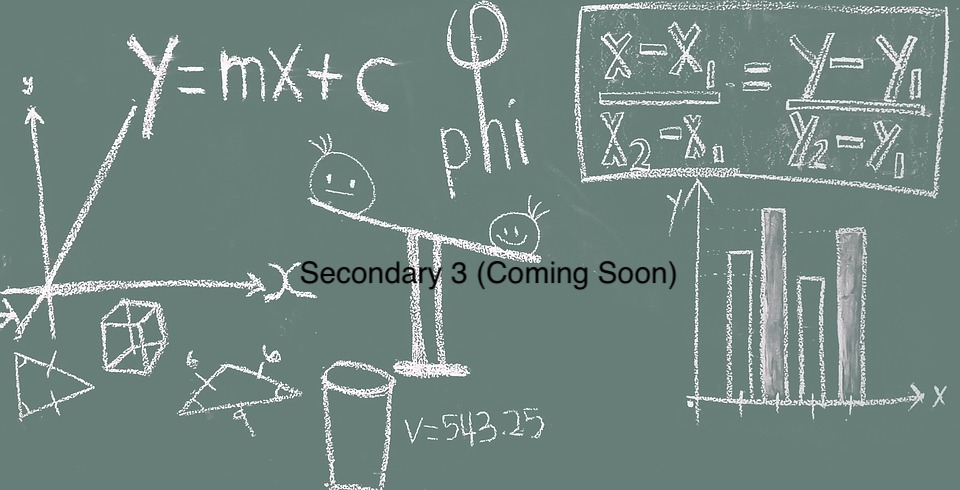 y
y=mx+c
φ
phi
x-x₁ / x₂-x₁ = y-y₁ / y₂-y₁
y
x
Secondary 3 (Coming Soon)
6
6
9
V=543.25
x